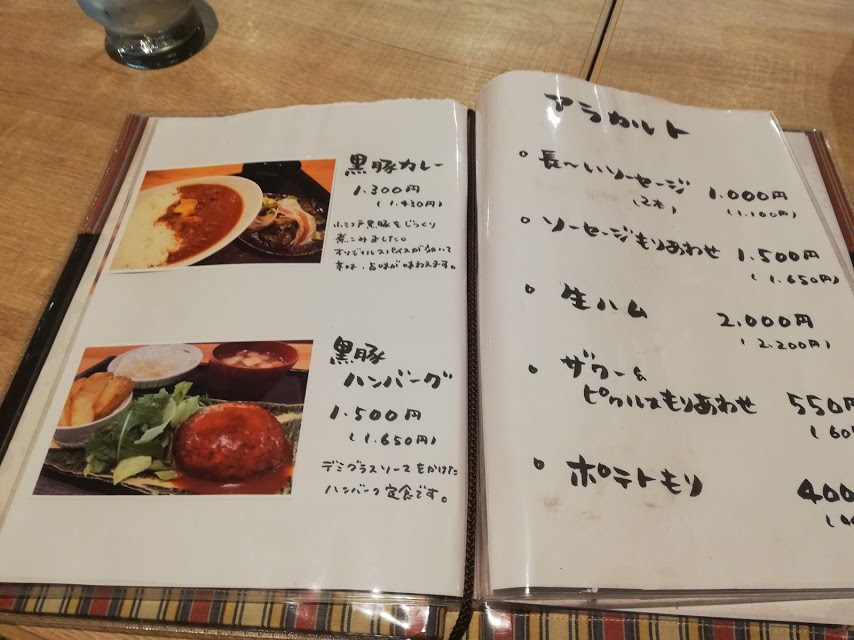 黒豚カレー
1.300円
(1.430円)
小江戸黒豚をじっくり
煮こみました。
オリジナルスパイスが効いて
辛味、旨味が味わえます。
黒豚
ハンバーグ
1.500円
(1.650円)
デミグラスソースをかけた
ハンバーグ定食です。
アラカルト
長〜いソーセージ 1.000円
(2本) (1.100円)
ソーセージもりあわせ 1.500円
(1.650円)
生ハム 2.000円
(2.200円)
ザワーム
ピクルスもりあわせ 550円
(60
ポテトもり 400